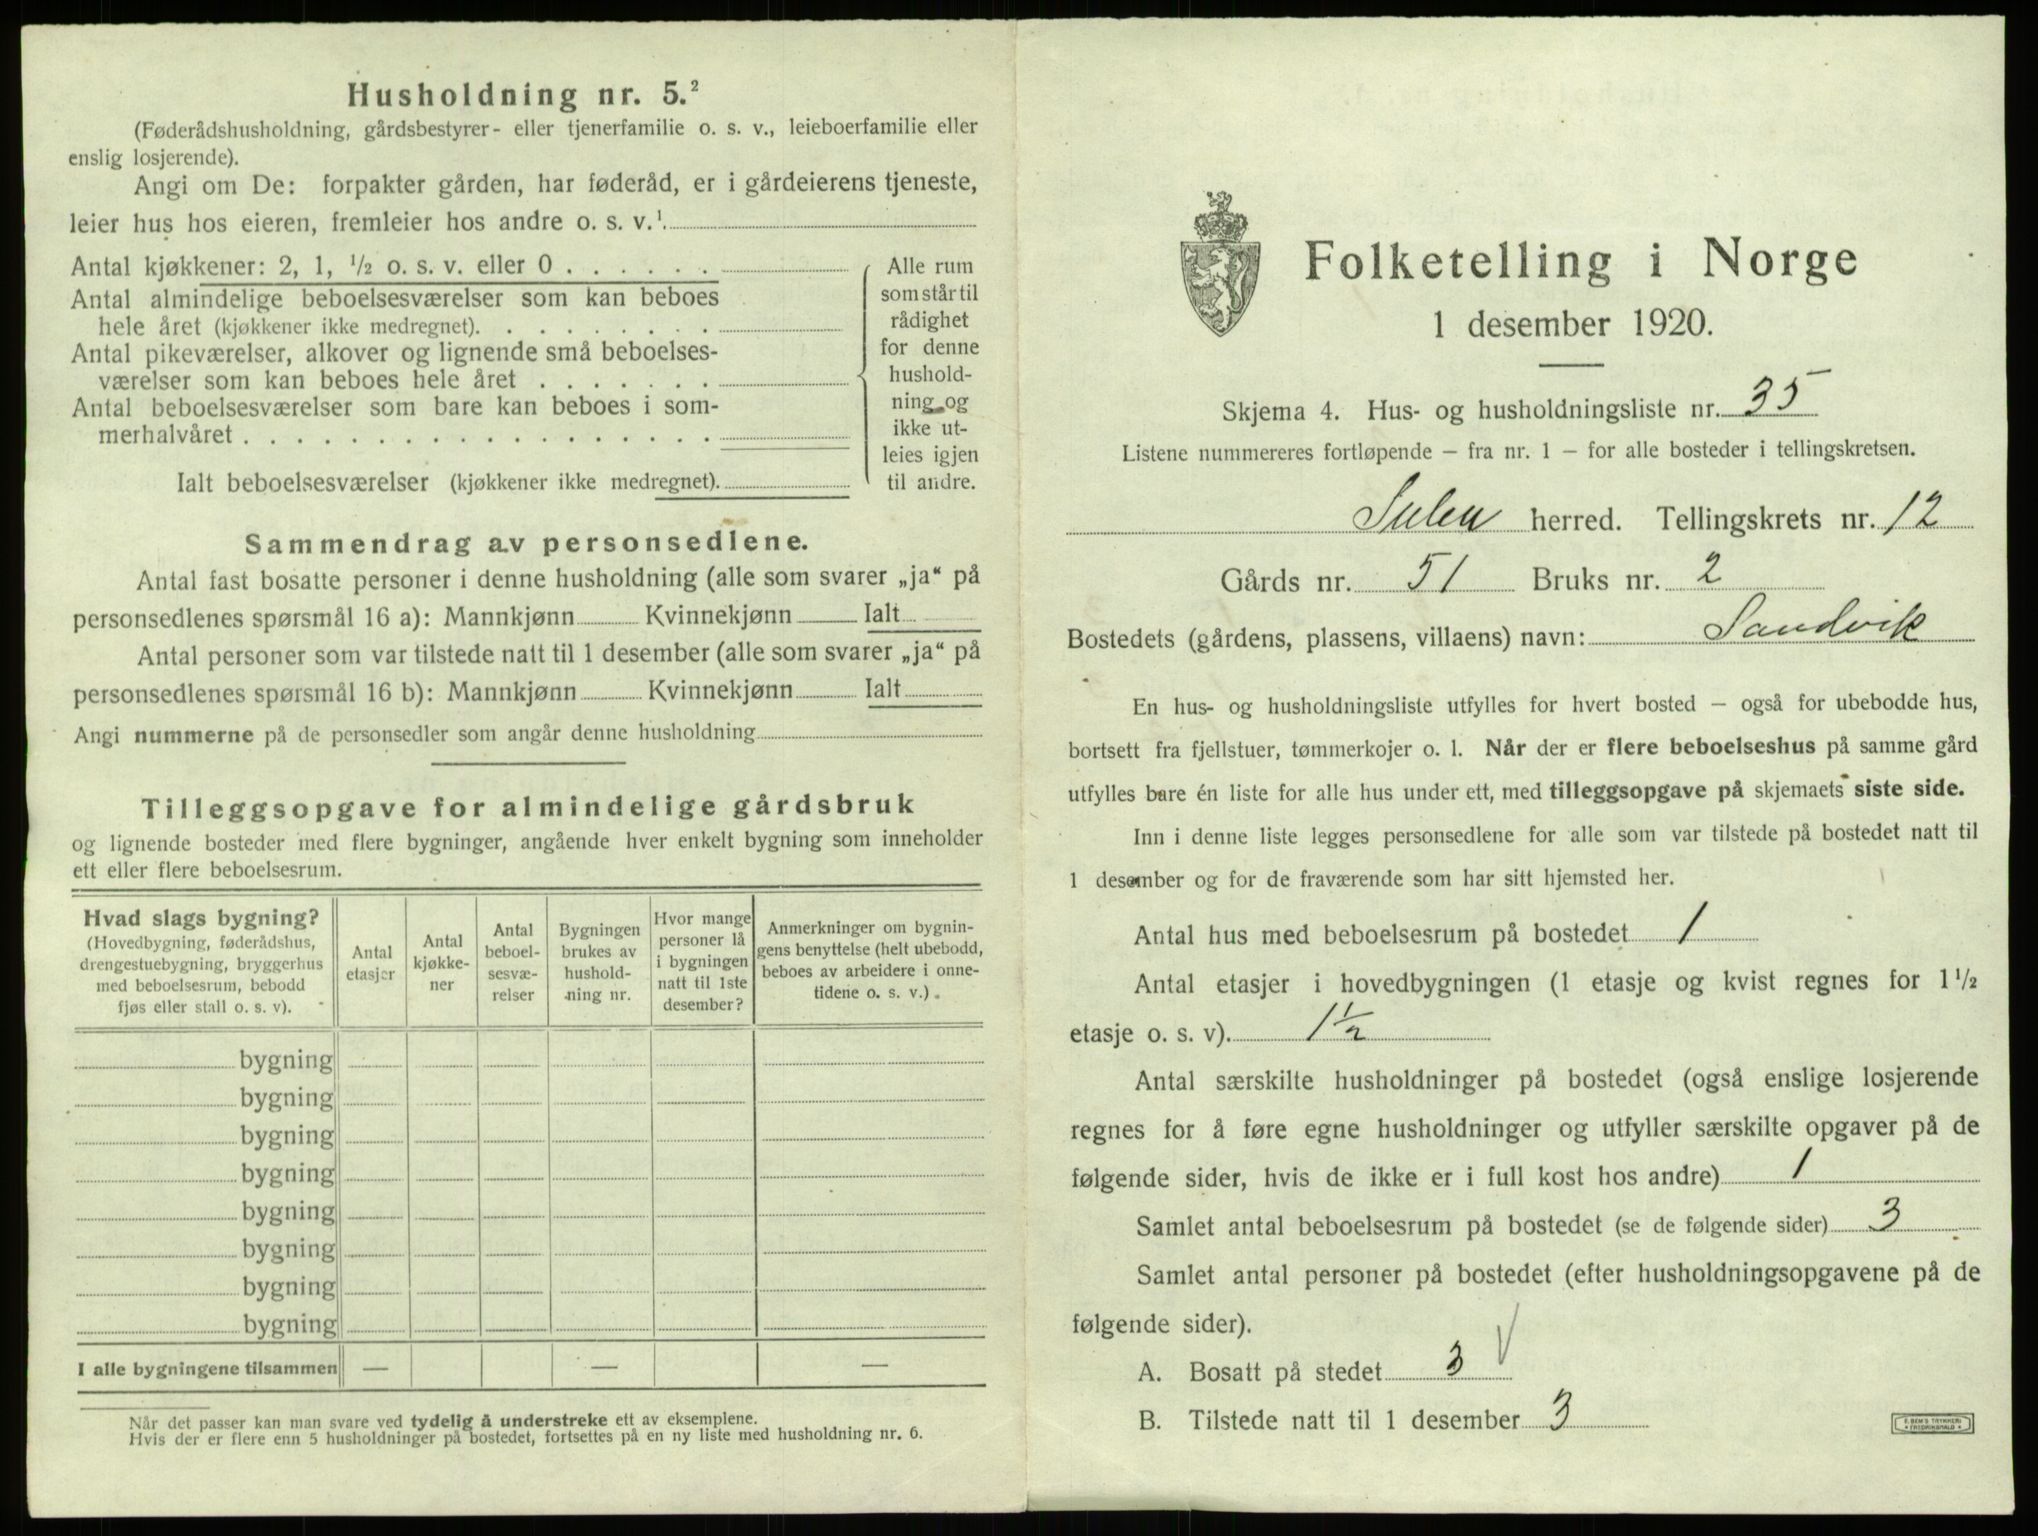 Husholdning nr. 5.²
(Føderådshusholdning, gårdsbestyrer- eller tjenerfamilie o. s. v., leieboerfamilie eller
enslig losjerende).
Angi om De: forpakter gården, har føderåd, er i gårdeierens tjeneste,
leier hus hos eieren, fremleier hos andre o. s. v.¹.
Antal kjøkkener: 2, 1, ½ o. s. v. eller 0 . . . . . .
Antal almindelige beboelsesværelser som kan beboes
hele året (kjøkkener ikke medregnet). . . . . . . . .
Antal pikeværelser, alkover og lignende små beboelses-
værelser som kan beboes hele året . . . . . . .
Antal beboelsesværelser som bare kan beboes i som-
merhalvåret . . . . . . . . . . . . . . . . . .
Ialt beboelsesværelser (kjøkkener ikke medregnet).
Alle rum
som står til
rådighet
for denne
hushold-
ning og
ikke ut-
leies igjen
til andre.
Sammendrag av personsedlene.
Antal fast bosatte personer i denne husholdning (alle som svarer „ja“ på
personsedlenes spørsmål 16 a): Mannkjønn Kvinnekjønn Ialt
Antal personer som var tilstede natt til 1 desember (alle som svarer „ja“ på
personsedlenes spørsmål 16 b): Mannkjønn Kvinnekjønn Ialt
Angi nummerne på de personsedler som angår denne husholdning
Tilleggsopgave for almindelige gårdsbruk
og lignende bosteder med flere bygninger, angående hver enkelt bygning som inneholder
ett eller flere beboelsesrum.
Hvad slags bygning?
(Hovedbygning, føderådshus,
drengestuebygning, bryggerhus
med beboelsesrum, bebodd
fjøs eller stall o. s. v).
Antal
etasjer
Antal
kjøkke-
ner
Antal
beboel-
sesvæ-
relser
Bygningen
brukes av
hushold-
ning nr.
Hvor mange
personer lå
i bygningen
natt til 1ste
desember?
Anmerkninger om bygnin-
gens benyttelse (helt ubebodd,
beboes av arbeidere i onne-
tidene o. s. v.).
bygning
bygning
bygning
bygning
bygning
bygning
bygning
bygning
I alle bygningene tilsammen — — —
Når det passer kan man svare ved tydelig å understreke ett av eksemplene.
Hvis der er flere enn 5 husholdninger på bostedet, fortsettes på en ny liste med husholdning nr. 6.
Folketelling i Norge
1 desember 1920.
Skjema 4. Hus- og husholdningsliste nr. 35
Listene nummereres fortløpende – fra nr. 1 – for alle bosteder i tellingskretsen.
Sulen herred. Tellingskrets nr. 12
Gårds nr. 51 Bruks nr. 2
Bostedets (gårdens, plassens, villaens) navn: Sandvik
En hus- og husholdningsliste utfylles for hvert bosted – også for ubebodde hus,
bortsett fra fjellstuer, tømmerkojer o. l. Når der er flere beboelseshus på samme gård
utfylles bare én liste for alle hus under ett, med tilleggsopgave på skjemaets siste side.
Inn i denne liste legges personsedlene for alle som var tilstede på bostedet natt til
1 desember og for de fraværende som har sitt hjemsted her.
Antal hus med beboelsesrum på bostedet 1
Antal etasjer i hovedbygningen (1 etasje og kvist regnes for 1½
etasje o. s. v). 1½
Antal særskilte husholdninger på bostedet (også enslige losjerende
regnes for å føre egne husholdninger og utfyller særskilte opgaver på de
følgende sider, hvis de ikke er i full kost hos andre) 1
Samlet antal beboelsesrum på bostedet (se de følgende sider) 3
Samlet antal personer på bostedet (efter husholdningsopgavene på de
følgende sider).
A. Bosatt på stedet 3 V
B. Tilstede natt til 1 desember 3